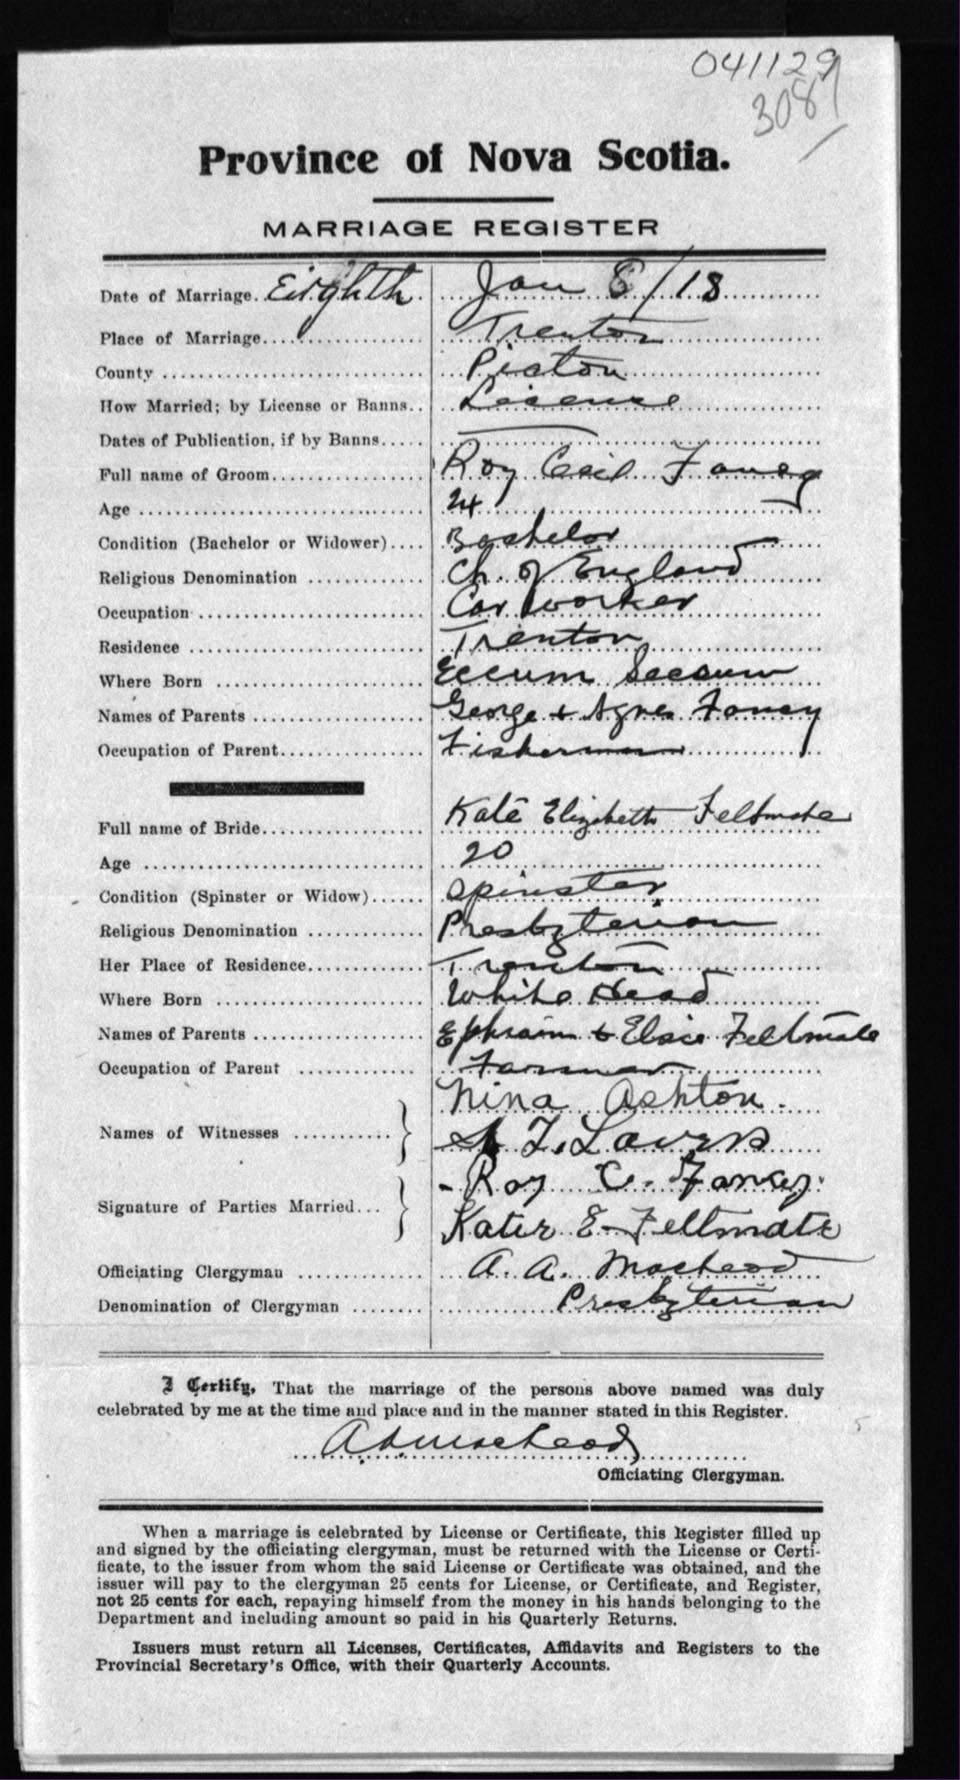 041129
3087
Province of Nova Scotia.
MARRIAGE REGISTER
Date of Marriage. Eighth Jan 8/18
Place of Marriage Trenton
County Pictou
How Married; by License or Banns License
Dates of Publication, if by Banns
Full name of Groom Roy Cecil Fancy
Age 24
Condition (Bachelor or Widower) Bachelor
Religious Denomination Ch. of England
Occupation Car worker
Residence Trenton
Where Born Eccum Seccum
Names of Parents George & Agnes Fancy
Occupation of Parent Fisherman
Full name of Bride Kate Elizabeth Feltmate
Age 20
Condition (Spinster or Widow) Spinster
Religious Denomination Presbyterian
Her Place of Residence Trenton
Where Born White Head
Names of Parents Ephraim & Elsie Feltmate
Occupation of Parent Farmer
Names of Witnesses Nina Ashton.
F. Lavers
Signature of Parties Married Roy C. Fancy.
Katie E Feltmate
Officiating Clergyman A. A. MacLeod
Denomination of Clergyman Presbyterian
I Certify, That the marriage of the persons above named was duly
celebrated by me at the time and place and in the manner stated in this Register.
A A MacLeod
Officiating Clergyman.
When a marriage is celebrated by License or Certificate, this Register filled up
and signed by the officiating clergyman, must be returned with the License or Certi-
ficate, to the issuer from whom the said License or Certificate was obtained, and the
issuer will pay to the clergyman 25 cents for License, or Certificate, and Register,
not 25 cents for each, repaying himself from the money in his hands belonging to the
Department and including amount so paid in his Quarterly Returns.
Issuers must return all Licenses, Certificates, Affidavits and Registers to the
Provincial Secretary's Office, with their Quarterly Accounts.